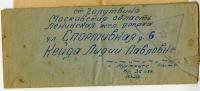 ст Голутвино
Московская область
Ленинская жел. дорога
ул Спортивная д 6
Нейда Лидии Павловне